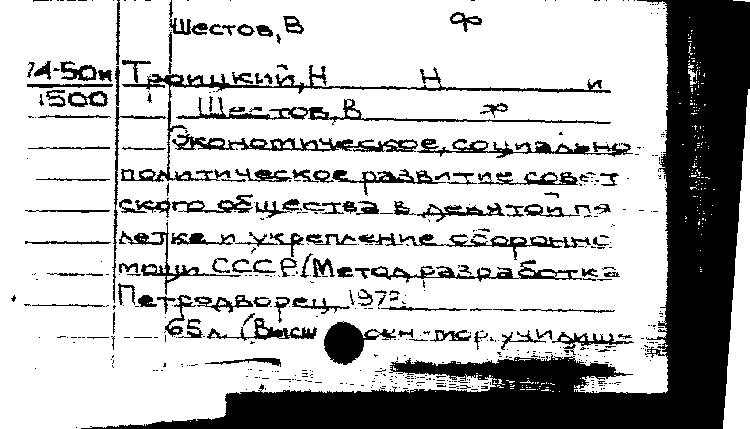 Шестов, В ф
74-50н Троицкий, Н Н и
1500 Шестов, В ф
Экономическое, социально
политическое развитие совет
ского общества в девятой пя
летке и укрепление обороннс
мощи СССР (Метод. разработка
Петродворец, 1973.
65л. (Высш военн-мор. училищ-